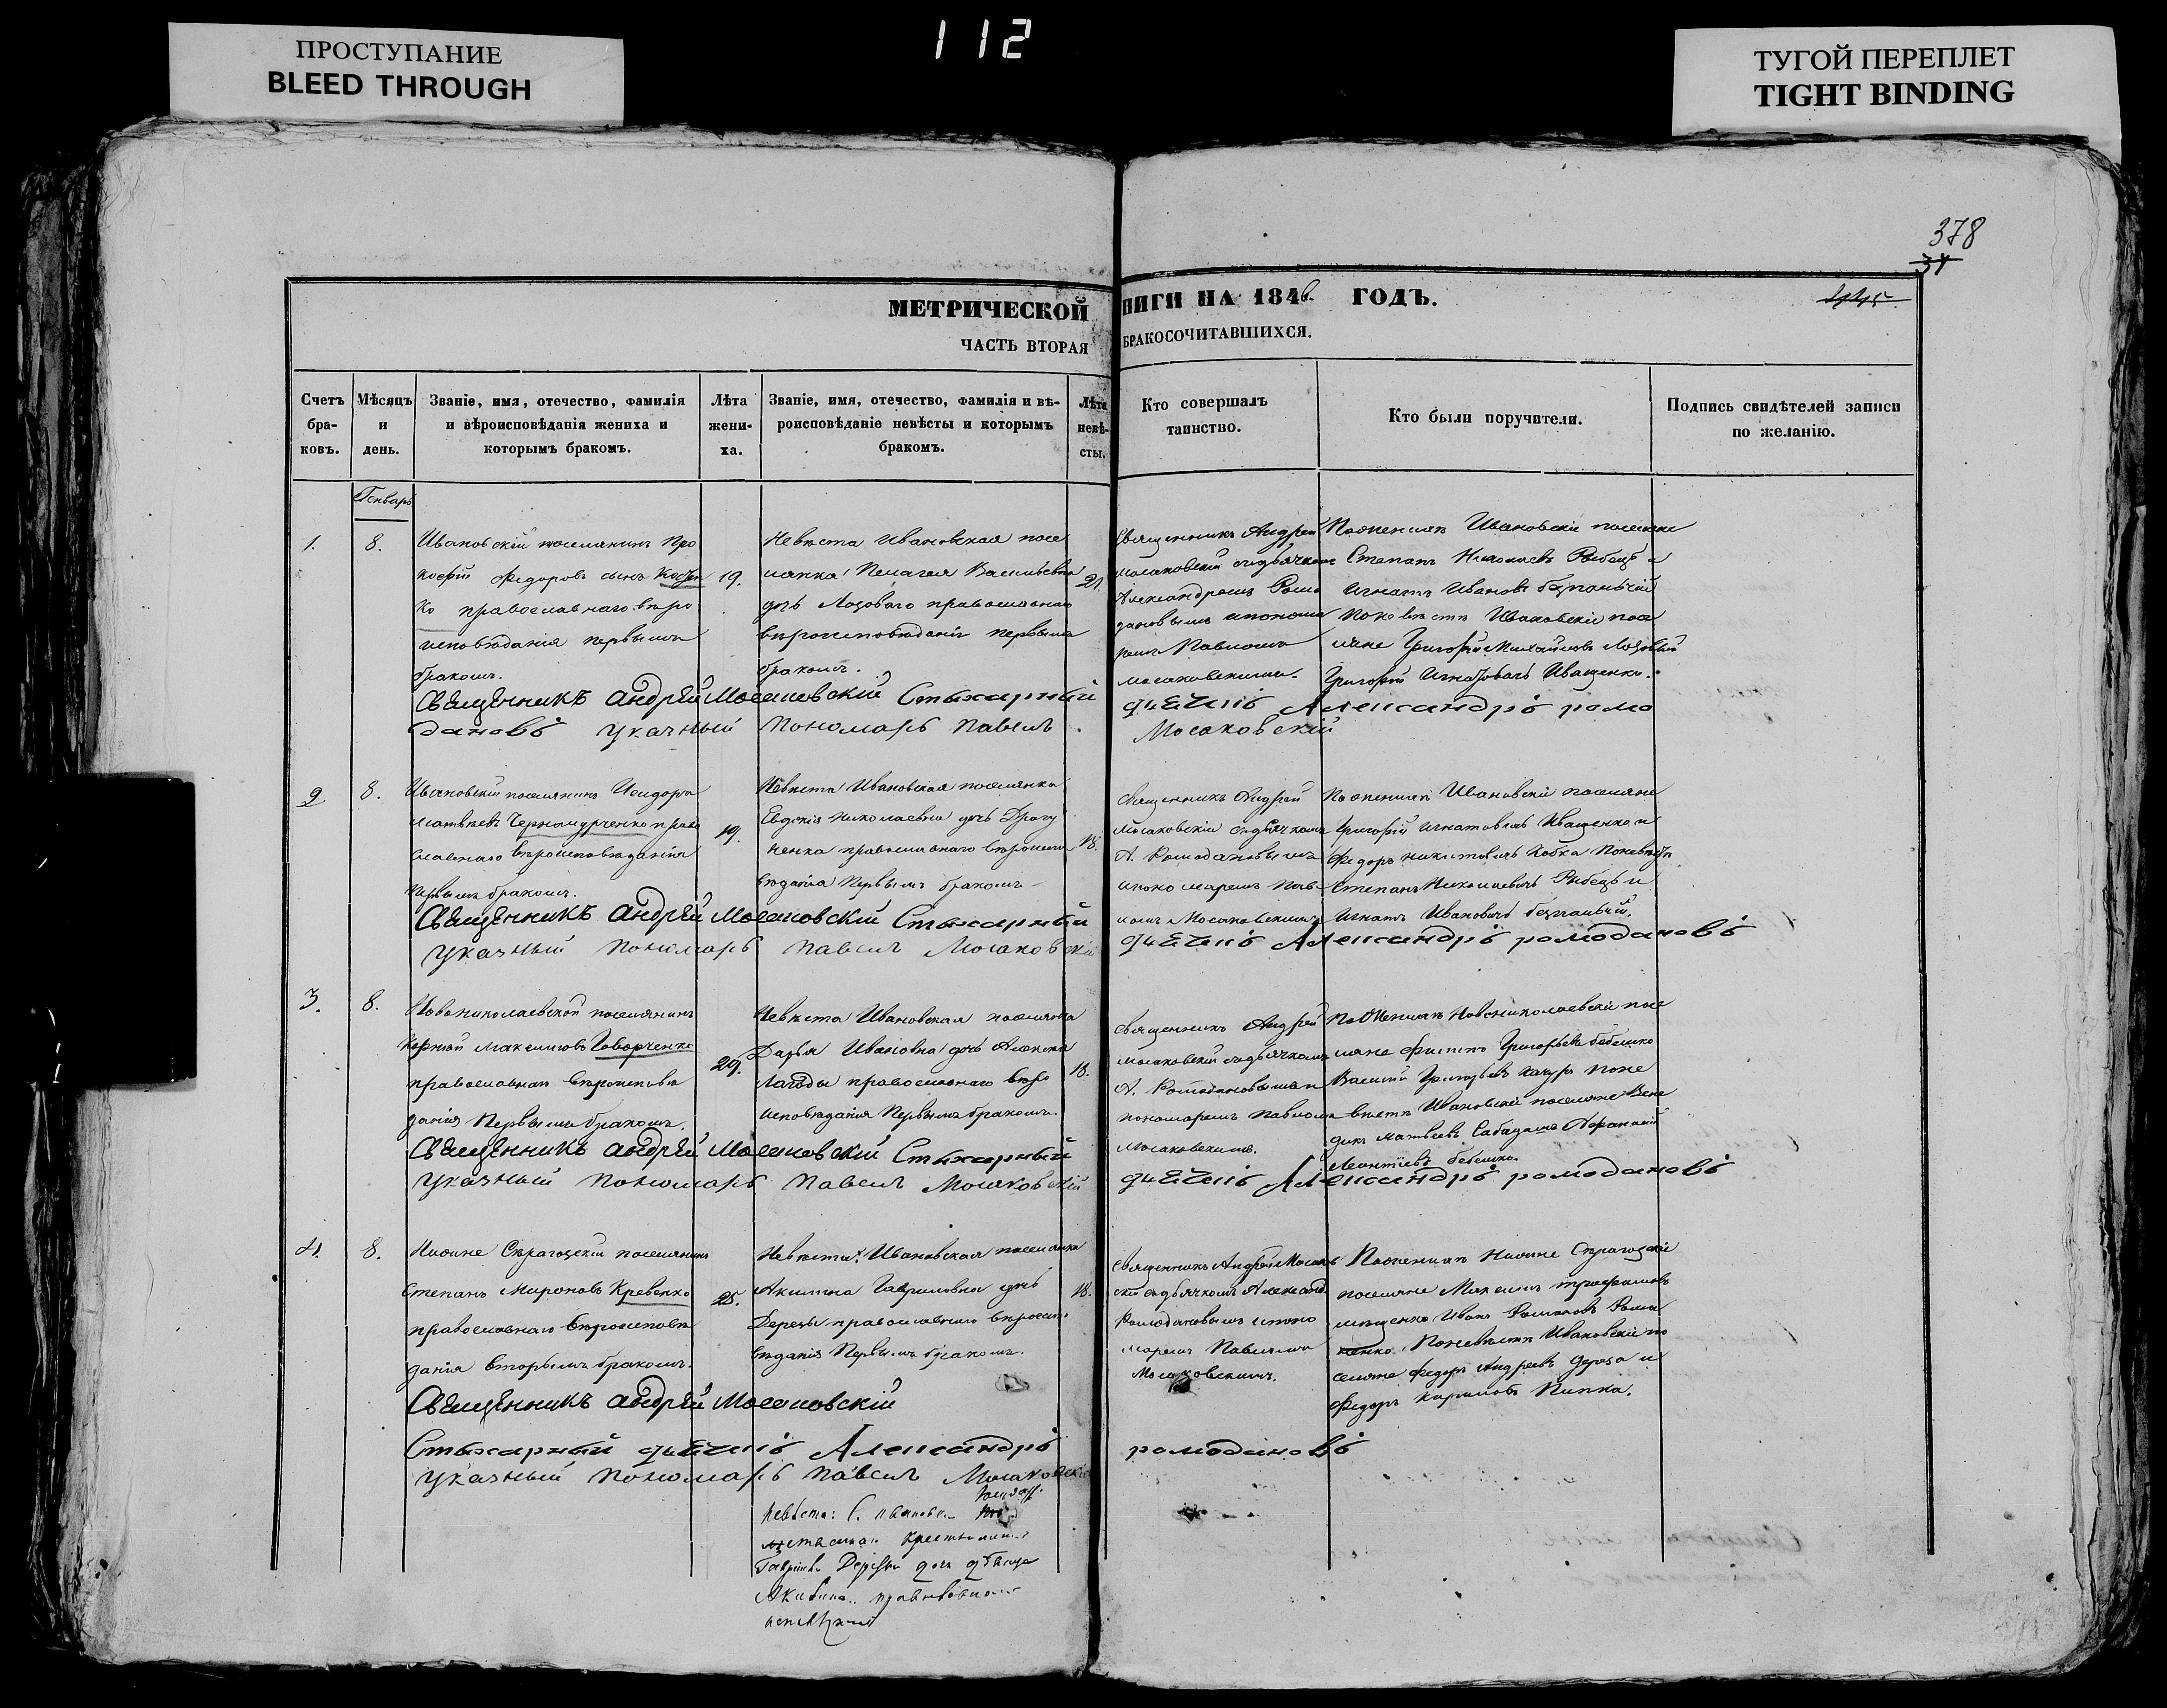 ПРОСТУПАНИЕ
BLEED THROUGH
112
ТУГОЙ ПЕРЕПЛЕТ
TIGHT BINDING
378
34
МЕТРИЧЕСКОЙ
НИГИ НА 1846 ГОДЪ.
ЧАСТЬ ВТОРАЯ
БРАКОСОЧИТАВШИХСЯ.
Счетъ бра-ковъ.
Мѣсяцъ и день.
Званіе, имя, отечество, фамилія и вѣроисповѣданія жениха и которымъ бракомъ.
Лѣта жени-ха.
Званіе, имя, отечество, фамилія и вѣ-роисповѣданіе невѣсты и которымъ бракомъ.
Лѣта невѣ-сты.
Кто совершалъ таинство.
Кто были поручители.
Подпись свидѣтелей записи по желанію.
Генварь
1.
8.
Ивановскій поселянинъ Про
кофій Федоровъ сынъ
ко православнаго вѣро
исповѣданія первымъ
бракомъ.
19.
Невѣста Ивановская посе
лянка Пелагея Васильевна
дочь Лозоваго православнаго
вѣроисповѣданія первымъ
бракомъ.
21.
Священникъ Андрей
Мосаковскій съ дьячкомъ
Александромъ Ромо
дановымъ и понома
ремъ Павломъ
Мосаковскимъ.
По женихѣ Ивановскіе поселяне
Степанъ Николаевъ Рыбецъ и
Игнатъ Ивановъ Безпалый
По невѣстѣ Ивановскіе посе
ляне Григорій Михайловъ Лозовый
Григорій Игнатовъ Иващенко.
Священникъ Андрей Мосаковскій Стихарный
дьячекъ Александръ Ромо
дановъ Указный Пономарь Павелъ
Мосаковскій
2
8.
Ивановскій поселянинъ Исидоръ
Матвѣевъ Черномурченко право
славнаго вѣроисповѣданія
первымъ бракомъ.
19.
Невѣста Ивановская поселянка
Евдокія Николаевна дочь Драгу
ненка православнаго вѣроиспо
вѣданія Первымъ бракомъ
18.
Священникъ Андрей
Мосаковскій съ дьячкомъ
А. Ромодановымъ
и пономаремъ Пав
ломъ Мосаковскимъ
По женихѣ Ивановскіе поселяне
Григорій Игнатовъ Иващенко и
Федоръ Никитовичъ Кобка По невѣстѣ
Степанъ Николаевичъ Рыбецъ и
Игнатъ Ивановичъ Безпалый.
Священникъ Андрей Мосаковскій Стихарный
дьячекъ Александръ Ромодановъ
Указный Пономарь Павелъ Мосаковскій
3.
8.
Новониколаевскій поселянинъ
Корній Максимовъ Говорченко
православнаго вѣроисповѣ
данія Первымъ бракомъ.
29.
Невѣста Ивановская поселянка
Дарья Ивановна дочь
Лагоды православнаго вѣро
исповѣданія Первымъ бракомъ.
18.
Священникъ Андрей
Мосаковскій съ дьячкомъ
А. Ромодановымъ и
пономаремъ Павломъ
Мосаковскимъ.
По женихѣ Новониколаевскіе посе
ляне Филипъ Григорьевъ Бебешко
Василій Григорьевъ Качуръ По не
вѣстѣ Ивановскіе поселяне Вене
диктъ Матвѣевъ Афанасій
Леонтіевъ Бебешко.
Священникъ Андрей Мосаковскій Стихарный
дьячекъ Александръ Ромодановъ
Указный Пономарь Павелъ Мосаковскій
4.
8.
Нижне Сѣрогозскій поселянинъ
Степанъ Мироновъ Кревенко
православнаго вѣроисповѣ
данія вторымъ бракомъ.
25.
Невѣста Ивановская поселянка
Акилина Гавриловна дочь
Дерезы православнаго вѣроиспо
вѣданія Первымъ бракомъ.
18.
Священникъ Андрей Мосаков
скій съ дьячкомъ Александ.
Ромодановымъ и поно
маремъ Павломъ
Мосаковскимъ.
По женихѣ Нижне Сѣрогозскіе
поселяне Максимъ Трофимовъ
Иванъ Романовъ Рома
ненко По невѣстѣ Ивановскіе по
селяне Федоръ Андреевъ Дереза и
Федоръ Кириловъ Пипка.
Священникъ Андрей Мосаковскій
Стихарный дьячекъ Александръ
Ромодановъ
Указный Пономарь Павелъ Мосаковскій
Невѣста:
Гавріила Дерезы дочь дѣвица
Акилина